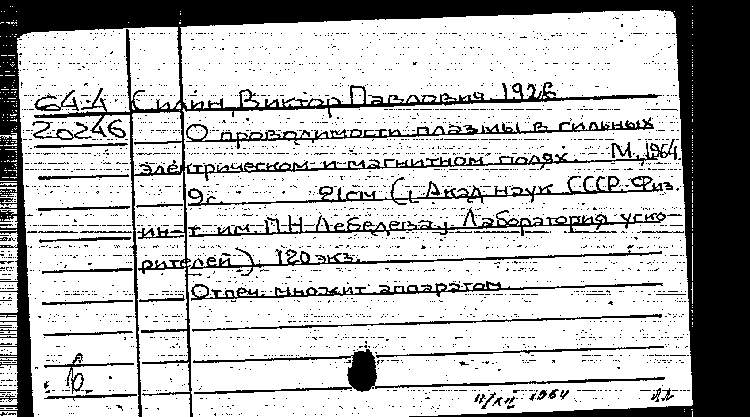 64-4 Силин, Виктор Павлович 1926
20246 О проводимости плазмы в сильных
электрическом и магнитном полях. М., 1964
9с. 21см (Акад. наук СССР. Физ.
ин-т им. П.Н. Лебедева. Лаборатория уско-
рителей). 120 экз.
Отпеч. множит. аппаратом.
1964